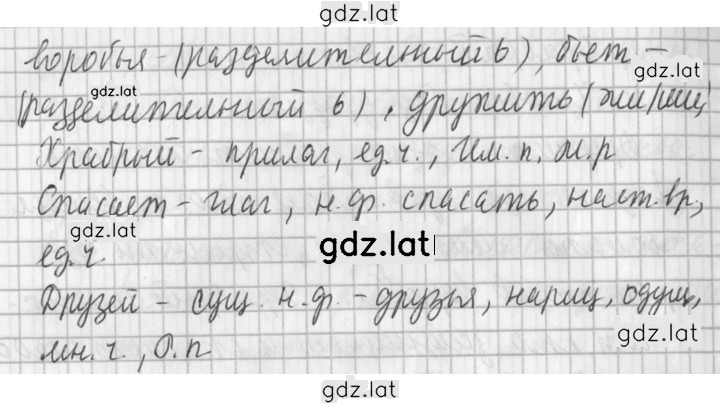 gdz.lat
воробья - (разделителный ь), бьет -
gdz.lat
gdz.lat
(разделителный ь), дружить (жи/ши)
Храбрый - прилаг, ед.ч., Им.п, м.р
Спасает - глаг, н.ф. спасать, наст.вр,
gdz.lat
gdz.lat
ед.ч
Друзей - сущ. н.ф. - друзья, нариц, одуш,
gdz.lat
мн.ч., Р.п
gdz.lat